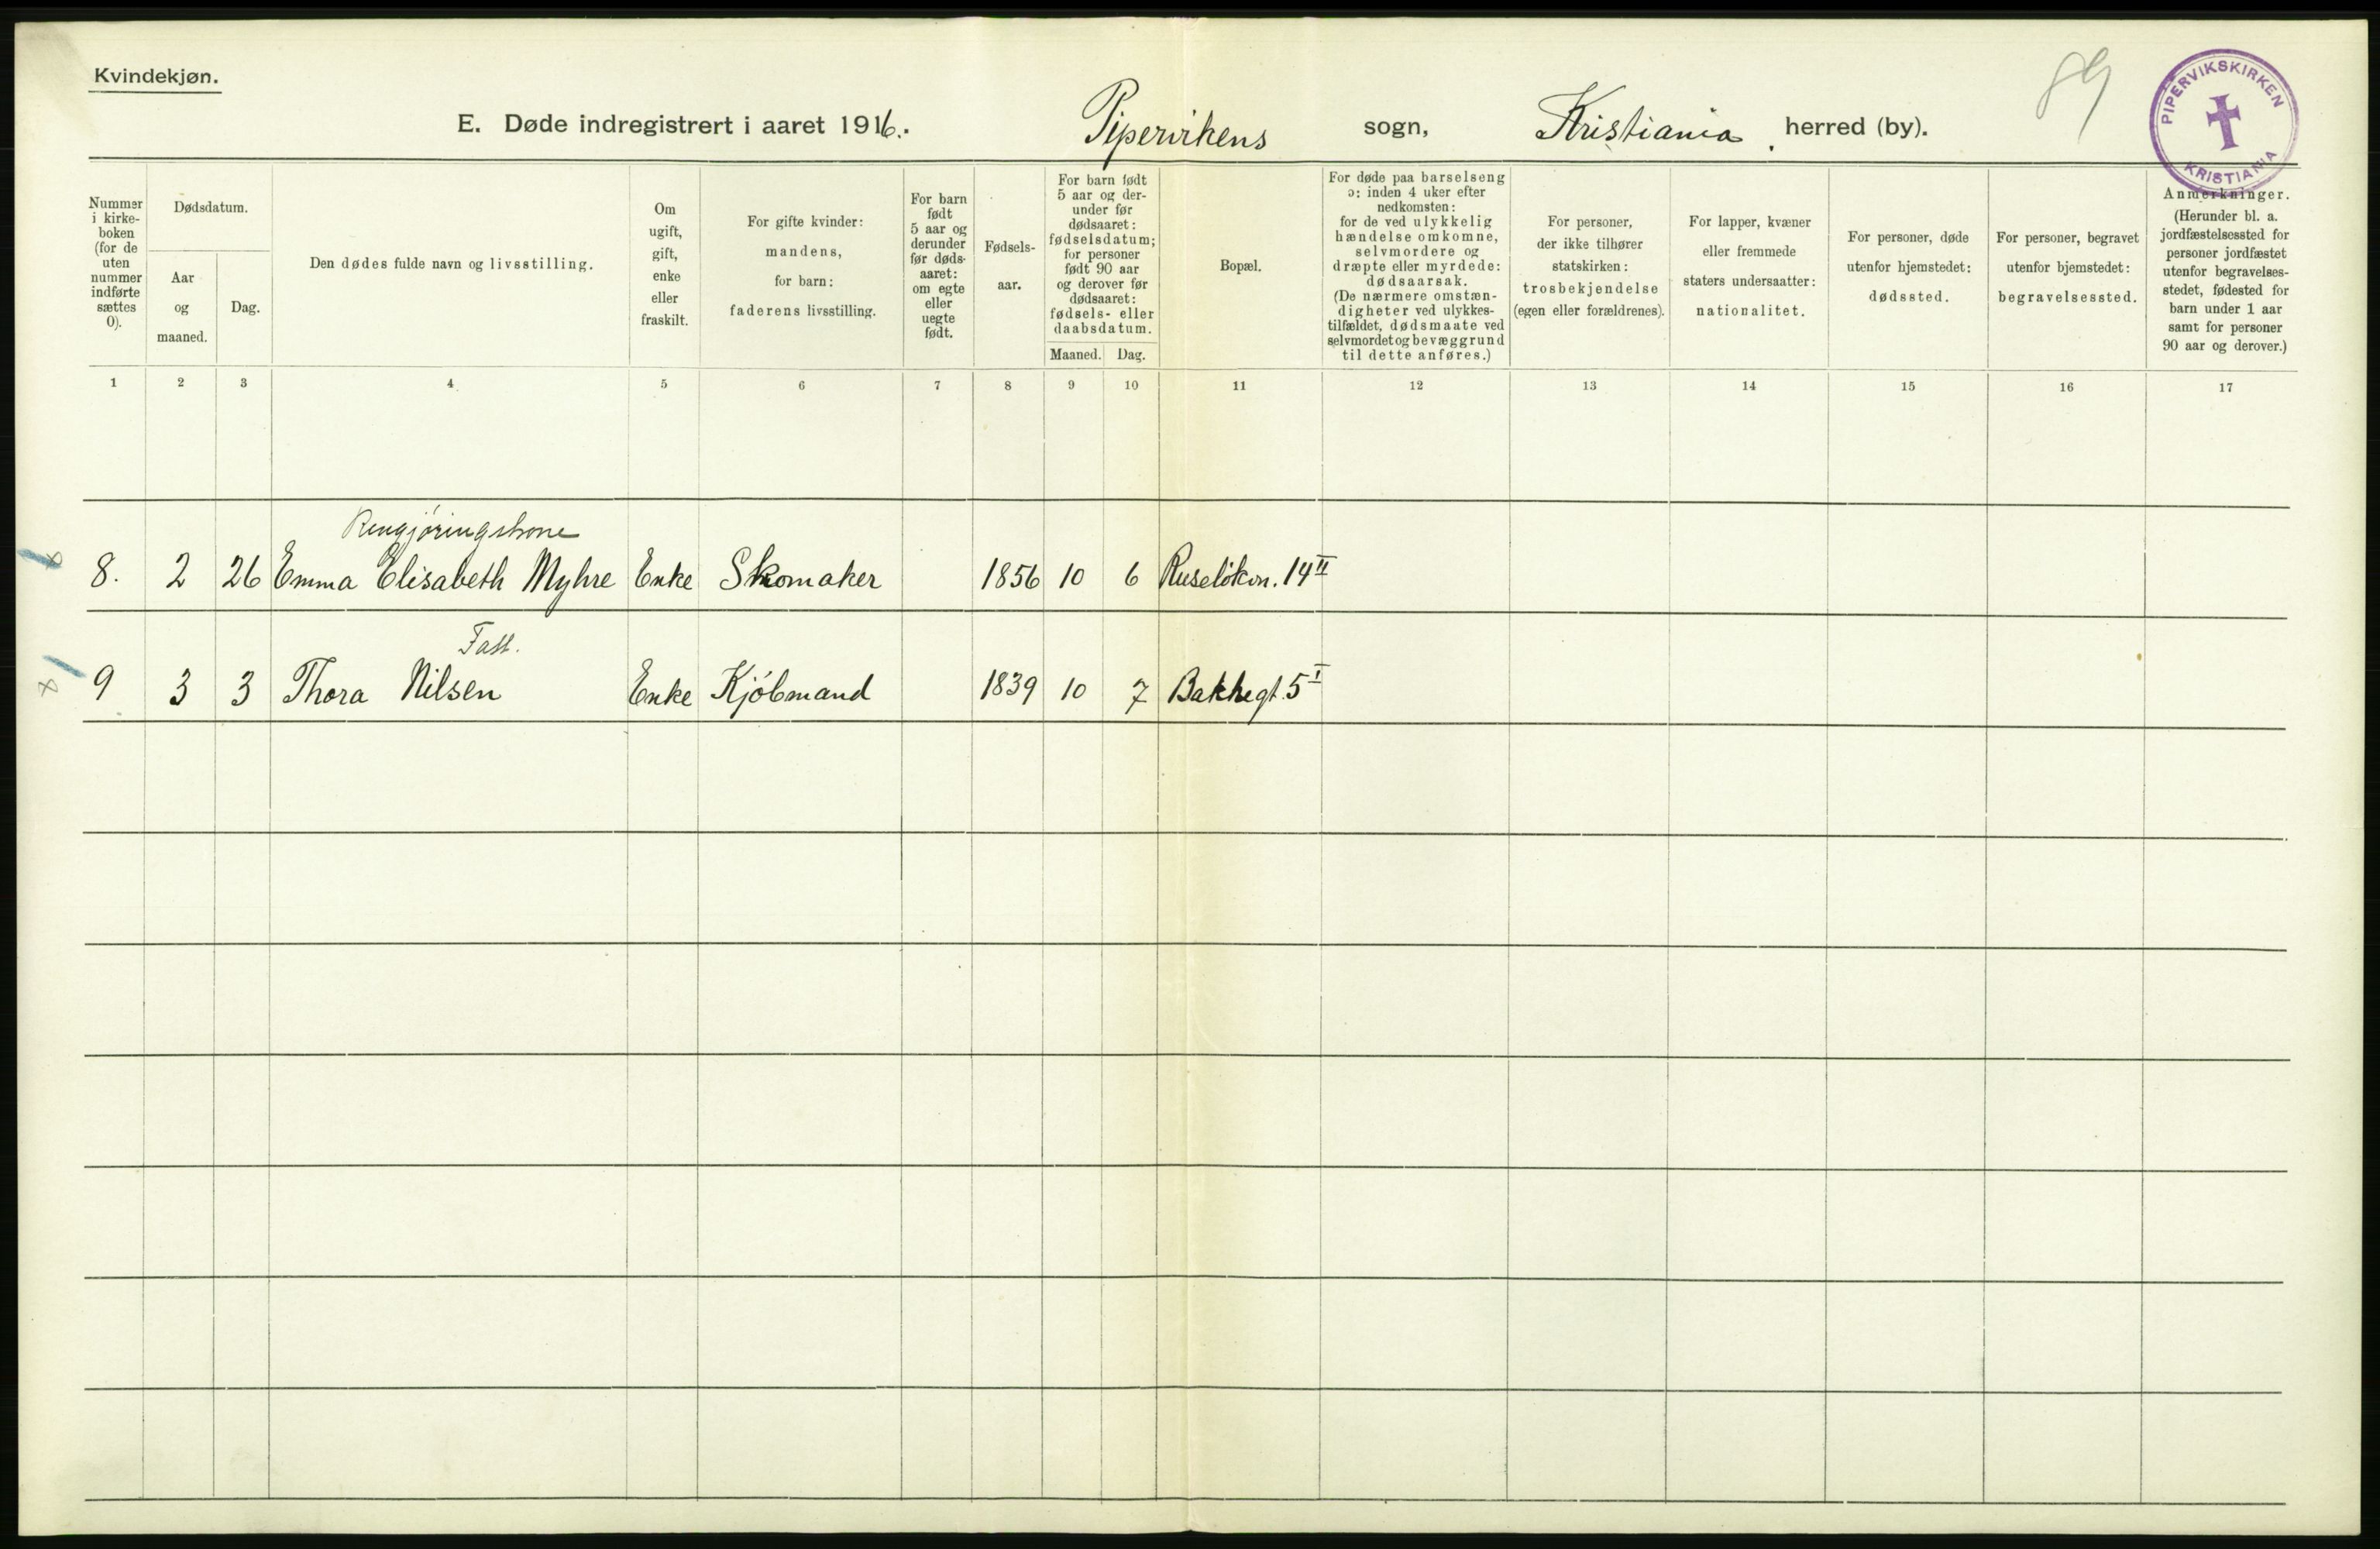 Kvindekjøn.
89
PIPERVIKSKIRKEN
KRISTIANIA
E. Døde indregistrert i aaret 1916. Pipervikens sogn, Kristiania herred (by).
Nummer
i kirke-
boken
(for de
uten
nummer
indførte
sættes
0).
Dødsdatum.
Aar
og
maaned.
Dag.
Den dødes fulde navn og livsstilling.
Om
ugift,
gift,
enke
eller
fraskilt.
For gifte kvinder:
mandens,
for barn:
faderens livsstilling.
For barn
født
5 aar og
derunder
før døds-
aaret:
om egte
eller
uegte
født.
Fødsels-
aar.
For barn født
5 aar og der-
under før
dødsaaret:
fødselsdatum;
for personer
født 90 aar
og derover før
dødsaaret:
fødsels- eller
daabsdatum.
Maaned. Dag.
Bopæl.
For døde paa barselseng
ɔ: inden 4 uker efter
nedkomsten:
for de ved ulykkelig
hændelse omkomne,
selvmordere og
dræpte eller myrdede:
dødsaarsak.
(De nærmere omstæn-
digheter ved ulykkes-
tilfældet, dødsmaate ved
selvmordet og bevæggrund
til dette anføres.)
For personer,
der ikke tilhører
statskirken:
trosbekjendelse
(egen eller forældrenes).
For lapper, kvæner
eller fremmede
staters undersaatter:
nationalitet.
For personer, døde
utenfor hjemstedet:
dødssted.
For personer, begravet
utenfor bjemstedet:
begravelsessted.
Anmerkninger.
(Herunder bl. a.
jordfæstelsessted for
personer jordfæstet
utenfor begravelses-
stedet, fødested for
barn under 1 aar
samt for personer
90 aar og derover.)
1 2 3 4 5 6 7 8 9 10 11 12 13 14 15 16 17
Rengjøringskone
8. 2 26 Emma Elisabeth Myhre Enke Skomaker 1856 10 6 Ruseløkvn. 14 II
Fatt.
9 3 3 Thora Nilsen Enke Kjøbmand 1839 10 7 Bakkegt. 5 I